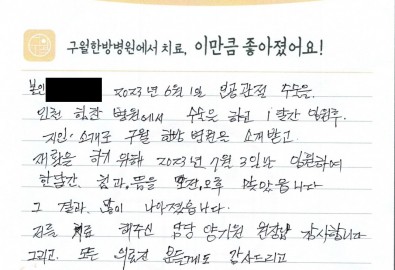 구월한방병원에서 치료, 이만큼 좋아졌어요!
본인 2023년 6월 1일 인공관절 수술을.
인천 병원에서 수술을 하고 1달간 입원후.
지인 소개로 구월 한방 병원을 소개받고
재활을 하기 위해 2023년 7월 3일날 입원하여
한달간. 침과. 뜸을 오전,오후 맞았읍니다
그 결과. 많이 나아졌읍니다.
치료 해주신 담당 양기원 원장님 감사합니다
그리고. 모든 의료진 분들께도 감사드리고